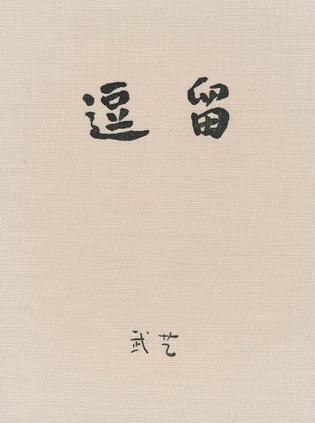 逗留
武艺